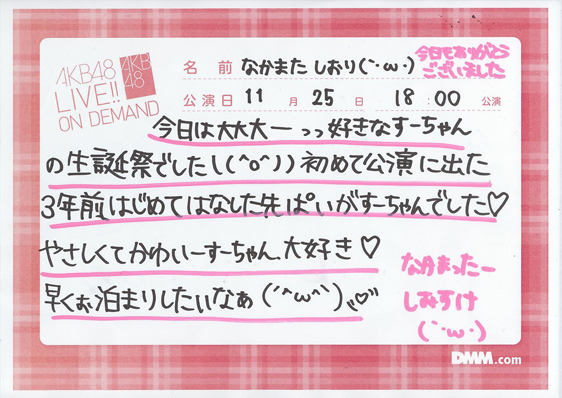 AKB48
LIVE!!
ON DEMAND
AKB
48
名前 なかまた しおり(´･ω･)
今日もありがとう
ございました
公演日 11月 25日 18:00 公演
今日は大大大ーっっ好きなすーちゃん
の生誕祭でした\(^o^))初めて公演に出た
3年前、はじめてはなした先ぱいがすーちゃんでした♡
やさしくてかわいーすーちゃん、大好き♡
早くお泊まりしたいなぁ(´^ω^`)
なかまったー
しおすけ
(´･ω･)
DMM.com